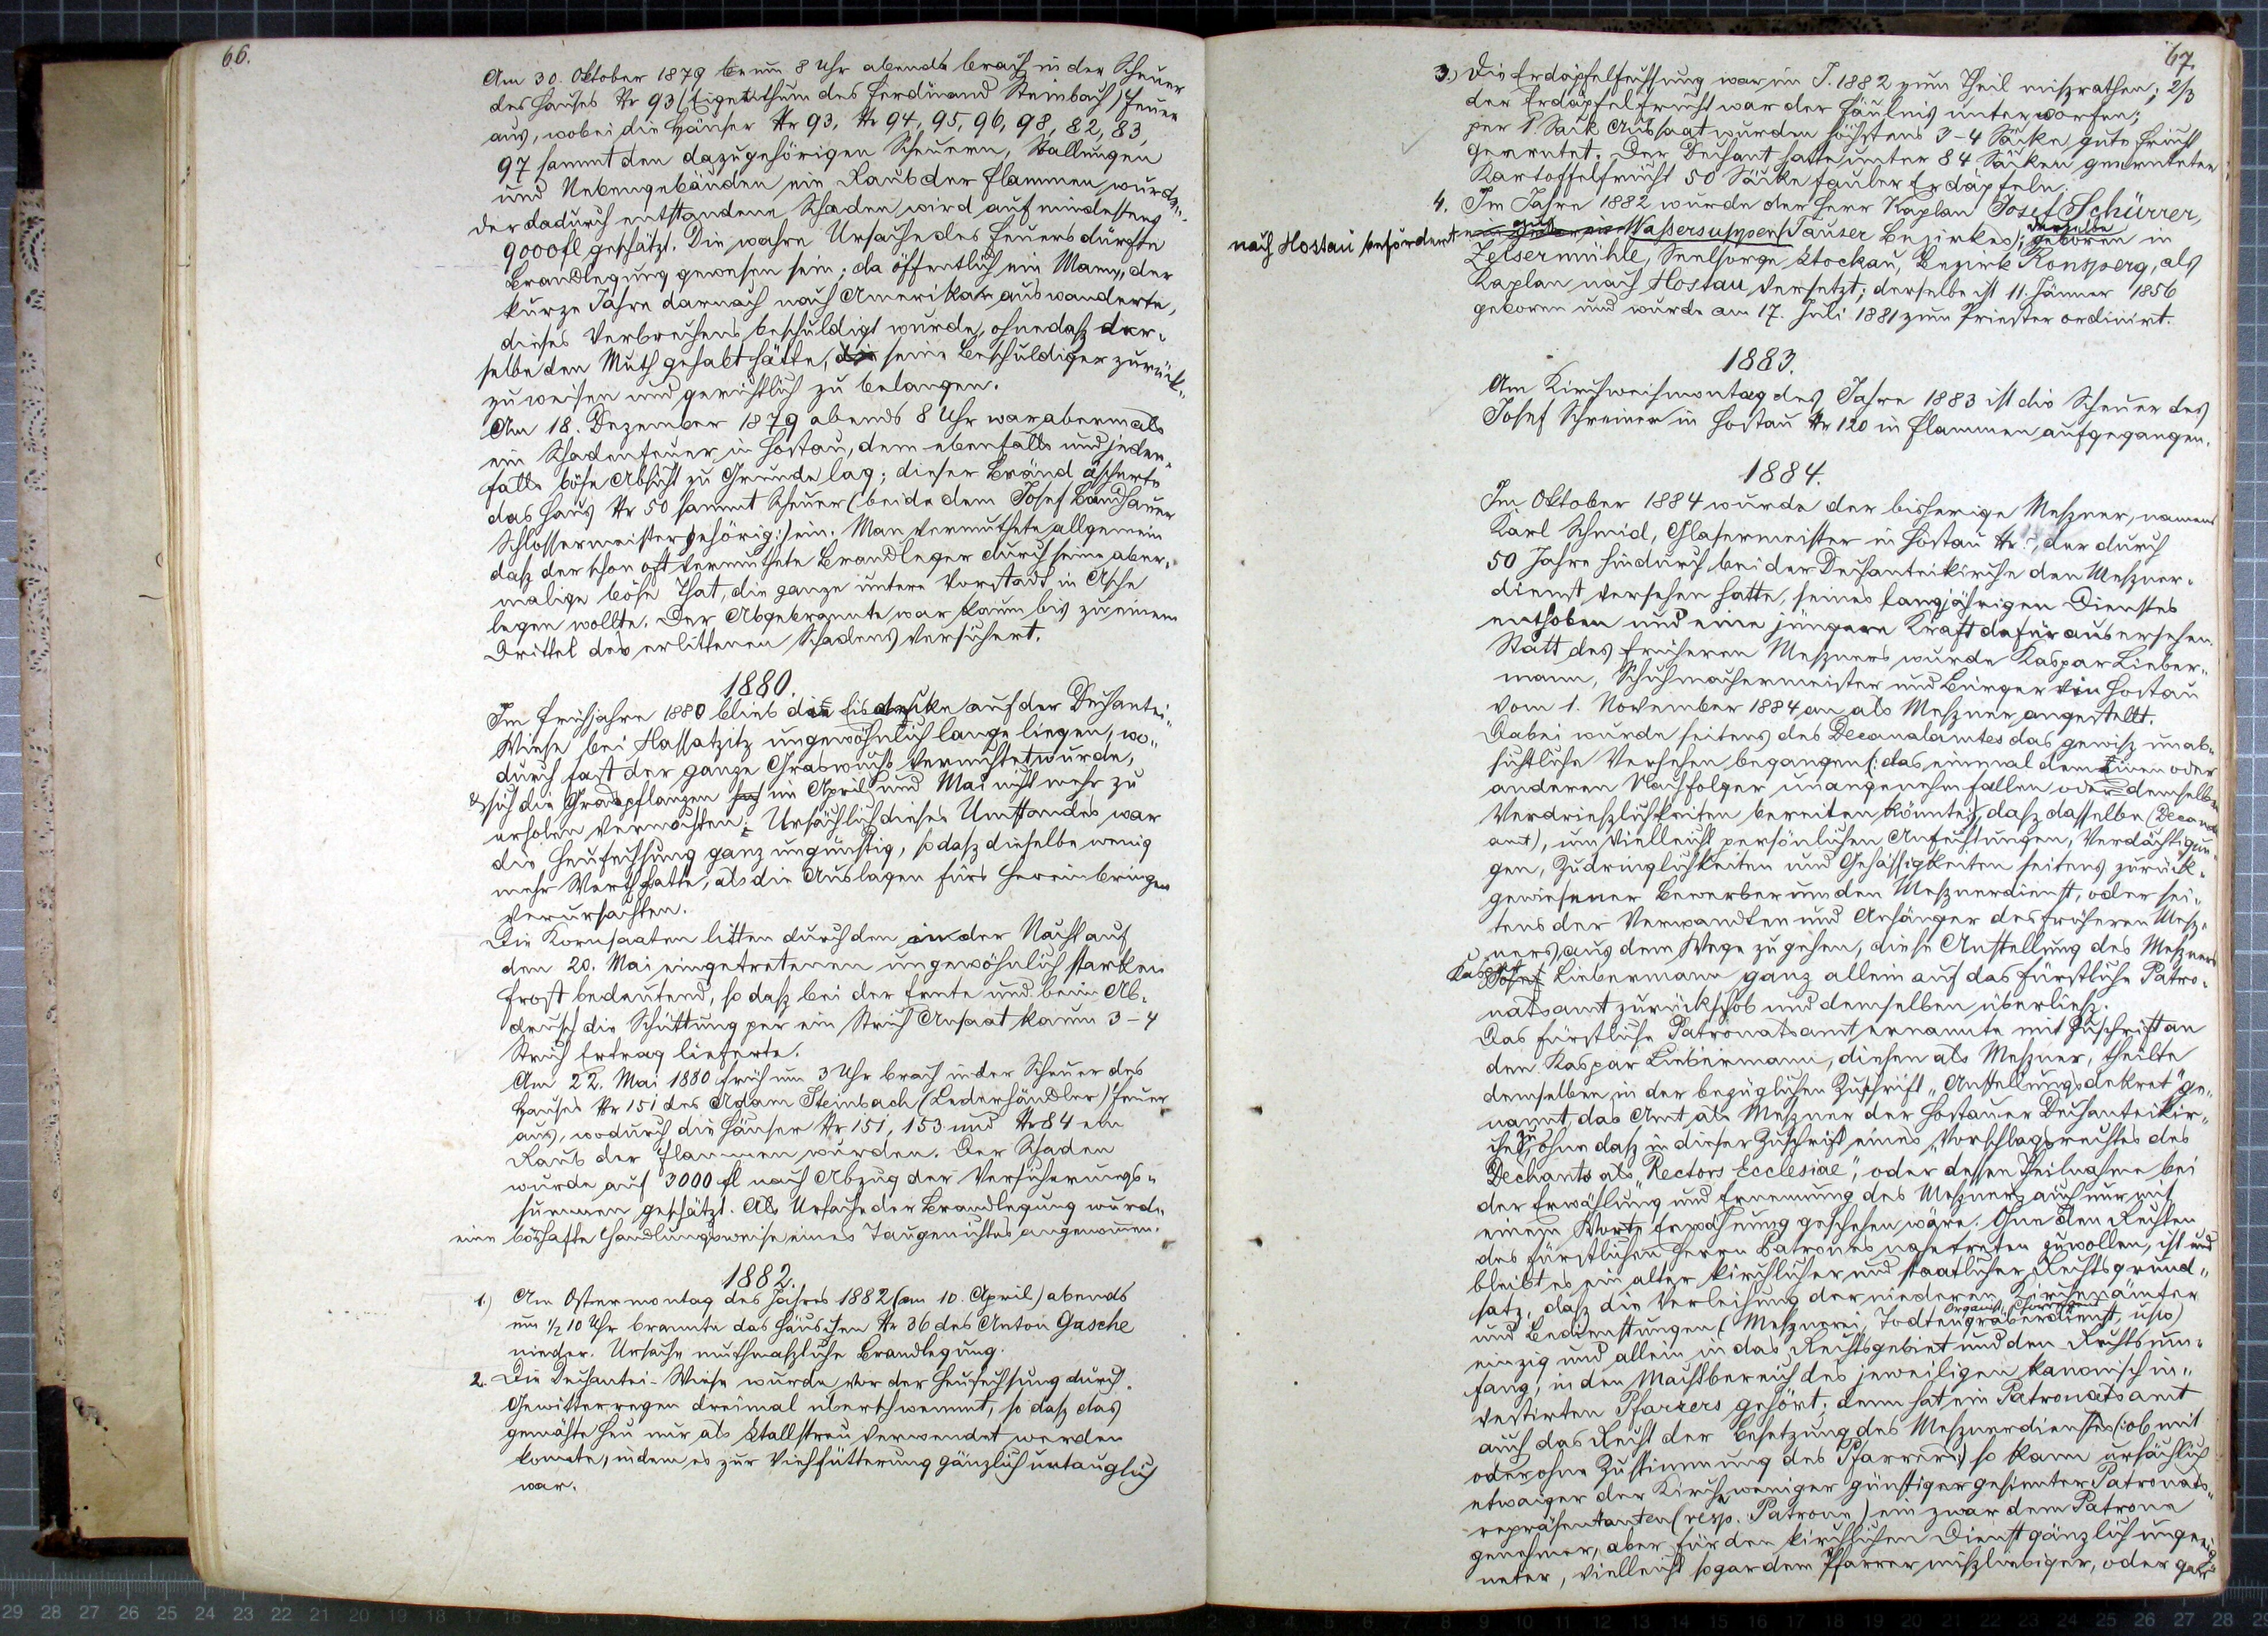 66.
Am 30. Oktober 1879 um 8 Uhr abends brach in der Scheuer
des Hauses Nr 93 (Eigenthum des Ferdinand Steinbach) Feuer
aus, wobei die Häuser Nr 93, Nr 94, 95, 96, 98, 82, 83,
97 sammt den dazugehörigen Scheuern, Stallungen
und Nebengebäuden ein Raub der Flammen wurden.
Der dadurch entstandene Schaden wird auf mindestens
9000 fl geschätzt. Die wahre Ursache des Feuers dürfte
Brandlegung gewesen sein; da öffentlich ein Mann, der
kurze Jahre darnach nach Amerika auswanderte,
dieses Verbrechens beschuldigt wurde, ohne dasz der-
selbe den Muth gehabt hätte, die seine Beschuldiger zurück-
zuweisen und gerichtlich zu belangen.
Am 18. Dezember 1879 abends 8 Uhr war abermals
ein Schadenfeuer in Hostau, dem ebenfalls und jeden-
falls böse Absicht zu Grunde lag; dieser Brand äscherte
das Haus Nr 50 sammt Scheuer (beide dem Josef Bandhauer
Schlossermeister gehörig:) ein. Man vermuthete allgemein
dasz der schon oft vermuthete Brandleger durch seine aber-
malige böse That, die ganze untere Vorstadt in Asche
legen wollte. Der Abgebrannte war kaum bis zu einem
Drittel des erlittenen Schadens versichert.
1880.
Im Frühjahre 1880 blieb die Eisdecke auf der Dechantei-
Wiese bei Hassatitz ungewöhnlich lange liegen, wo-
durch fast der ganze Graswuchs vernichtet wurde,
& sich die Graspflanzen im April und Mai nicht mehr zu
erholen vermochten. Ursächlich dieses Umstandes war
die Heufechsung ganz ungünstig, so dasz dieselbe wenig
mehr Werth hatte, als die Auslagen fürs Hereinbringen
verursachten.
Die Kornsaaten litten durch den in der Nacht auf
den 20. Mai eingetretenen ungewöhnlich starken
Frost bedeutend, so dasz bei der Ernte und beim Ab-
drusch die Schüttung per ein Strich Ansaat kaum 3–4
Strich Ertrag lieferte.
Am 22. Mai 1880 früh um 3 Uhr brach in der Scheuer des
Hauses Nr 151 des Adam Steinbach (Lederhändler) Feuer
aus, wodurch die Häuser Nr 151, 153 und Nr 84 ein
Raub der Flammen wurden. Der Schaden
wurde auf 3000 fl nach Abzug der Versicherungs-
summen geschätzt. Als Ursache der Brandlegung wurde
eine boshafte Handlungsweise eines Taugenichtes angenommen.
1882.
1.) Am Ostermontag des Jahres 1882 (am 10. April) abends
um 1/2 10 Uhr brannte das Häuschen Nr 36 des Anton Gasche
nieder. Ursache muthmaszliche Brandlegung.
2. Die Dechantei-Wiese wurde vor der Heufechsung durch
Gewitterregen dreimal überschwemmt, so dasz das
gemähte Heu nur als Stallstreu verwendet werden
konnte, indem es zur Viehfütterung gänzlich untauglich
war.
67.
3.) Die Erdäpfelfechsung war im J. 1882 zum Theil miszrathen; 2/3
der Erdäpfelfrucht war der Fäulnis unterworfen;
per 1 Sack Aussaat wurden höchstens 3–4 Säcke gute Frucht
geerntet. Der Dechant hatte unter 84 Säcken geernteter
Kartoffelfrucht 50 Säcke fauler Erdäpfeln.
4. Im Jahre 1882 wurde der Herr Kaplan Josef Schürrer,
nach Hostau befördert Wassersuppen Tauser Bezirkes; derselbe geboren in
Zeisermühle, Seelsorge Stockau, Bezirk Ronsperg, als
Kaplan nach Hostau versetzt; derselbe ist 11. Jänner 1856
geboren und wurde am 17. Juli 1881 zum Priester ordinirt.
1883.
Am Kirchweihmontag des Jahres 1883 ist die Scheuer des
Josef Schreiner in Hostau Nr 120 in Flammen aufgegangen.
1884.
Im Oktober 1884 wurde der bisherige Meszner, namens
Karl Schmid, Glasermeister in Hostau Nr ?, der durch
50 Jahre hindurch bei der Dechanteikirche den Meszner-
dienst versehen hatte, seines langjährigen Dienstes
enthoben und eine jüngere Kraft dafür ausersehen.
Statt des früheren Meszners wurde Kaspar Lieber-
mann, Schuhmachermeister und Bürger in Hostau
vom 1. November 1884 an als Meszner angestellt.
Dabei wurde seitens des Decanalamtes das gewisz unab-
sichtliche Versehen begangen (: das einmal dem Einen oder
anderen Nachfolger unangenehm fallen oder demselben
Verdrieszlichkeiten bereiten könnte:), dasz dasselbe (Decanal
amt), um vielleicht persönlichen Anfechtungen, Verdächtigun-
gen, Zudringlichkeiten und Gehässigkeiten seitens zurück-
gewiesener Bewerber um den Mesznerdienst, oder sei-
tens der Verwandten und Anhänger des früheren Mesz-
ners, aus dem Wege zu gehen, diese Anstellung des Meszners
Kaspar Liebermann ganz allein auf das fürstliche Patro-
natsamt zurückschob und demselben überliesz.
Das fürstliche Patronatsamt ernannte mit Zuschrift an
den Kaspar Liebermann, diesen als Meszner, theilte
demselben in der bezüglichen Zuschrift „Anstellungsdekret" ge-
nannt, das Amt als Meszner der Hostauer Dechanteikir-
che zu, ohne dasz in dieser Zuschrift eines Vorschlagsrechtes des
Dechants als „Rectors Ecclesiae", oder dessen Theilnahme bei
der Erwählung und Ernennung des Meszners auch nur mit
einem Worte Erwähnung geschehen wäre. Ohne den Rechten
des fürstlichen Herrn Patrones nahetreten zu wollen, ist und
bleibt es ein alter kirchlicher und staatlicher Rechtsgrund-
satz, dasz die Verleihung der niederen Kirchenämter
und Bedienstungen (Mesznerei, Organist, Chorregent Todtengräberdienst, usw)
einzig und allein in das Rechtsgebiet und den Rechtsum-
fang, in den Machtbereich des jeweiligen kanonisch in-
vestirten Pfarrers gehört; denn hat ein Patronatsamt
auch das Recht der Besetzung des Mesznerdienstes (: ob mit
oder ohne Zustimmung des Pfarrers:) so kann ursächlich
etwaiger der Kirche weniger günstiger gesinnter Patronats-
repräsentanten (resp. Patrone) ein zwar dem Patrone
genehmer, aber für den kirchlichen Dienst gänzlich ungeeig-
neter, vielleicht sogar dem Pfarrer miszliebiger, oder gar